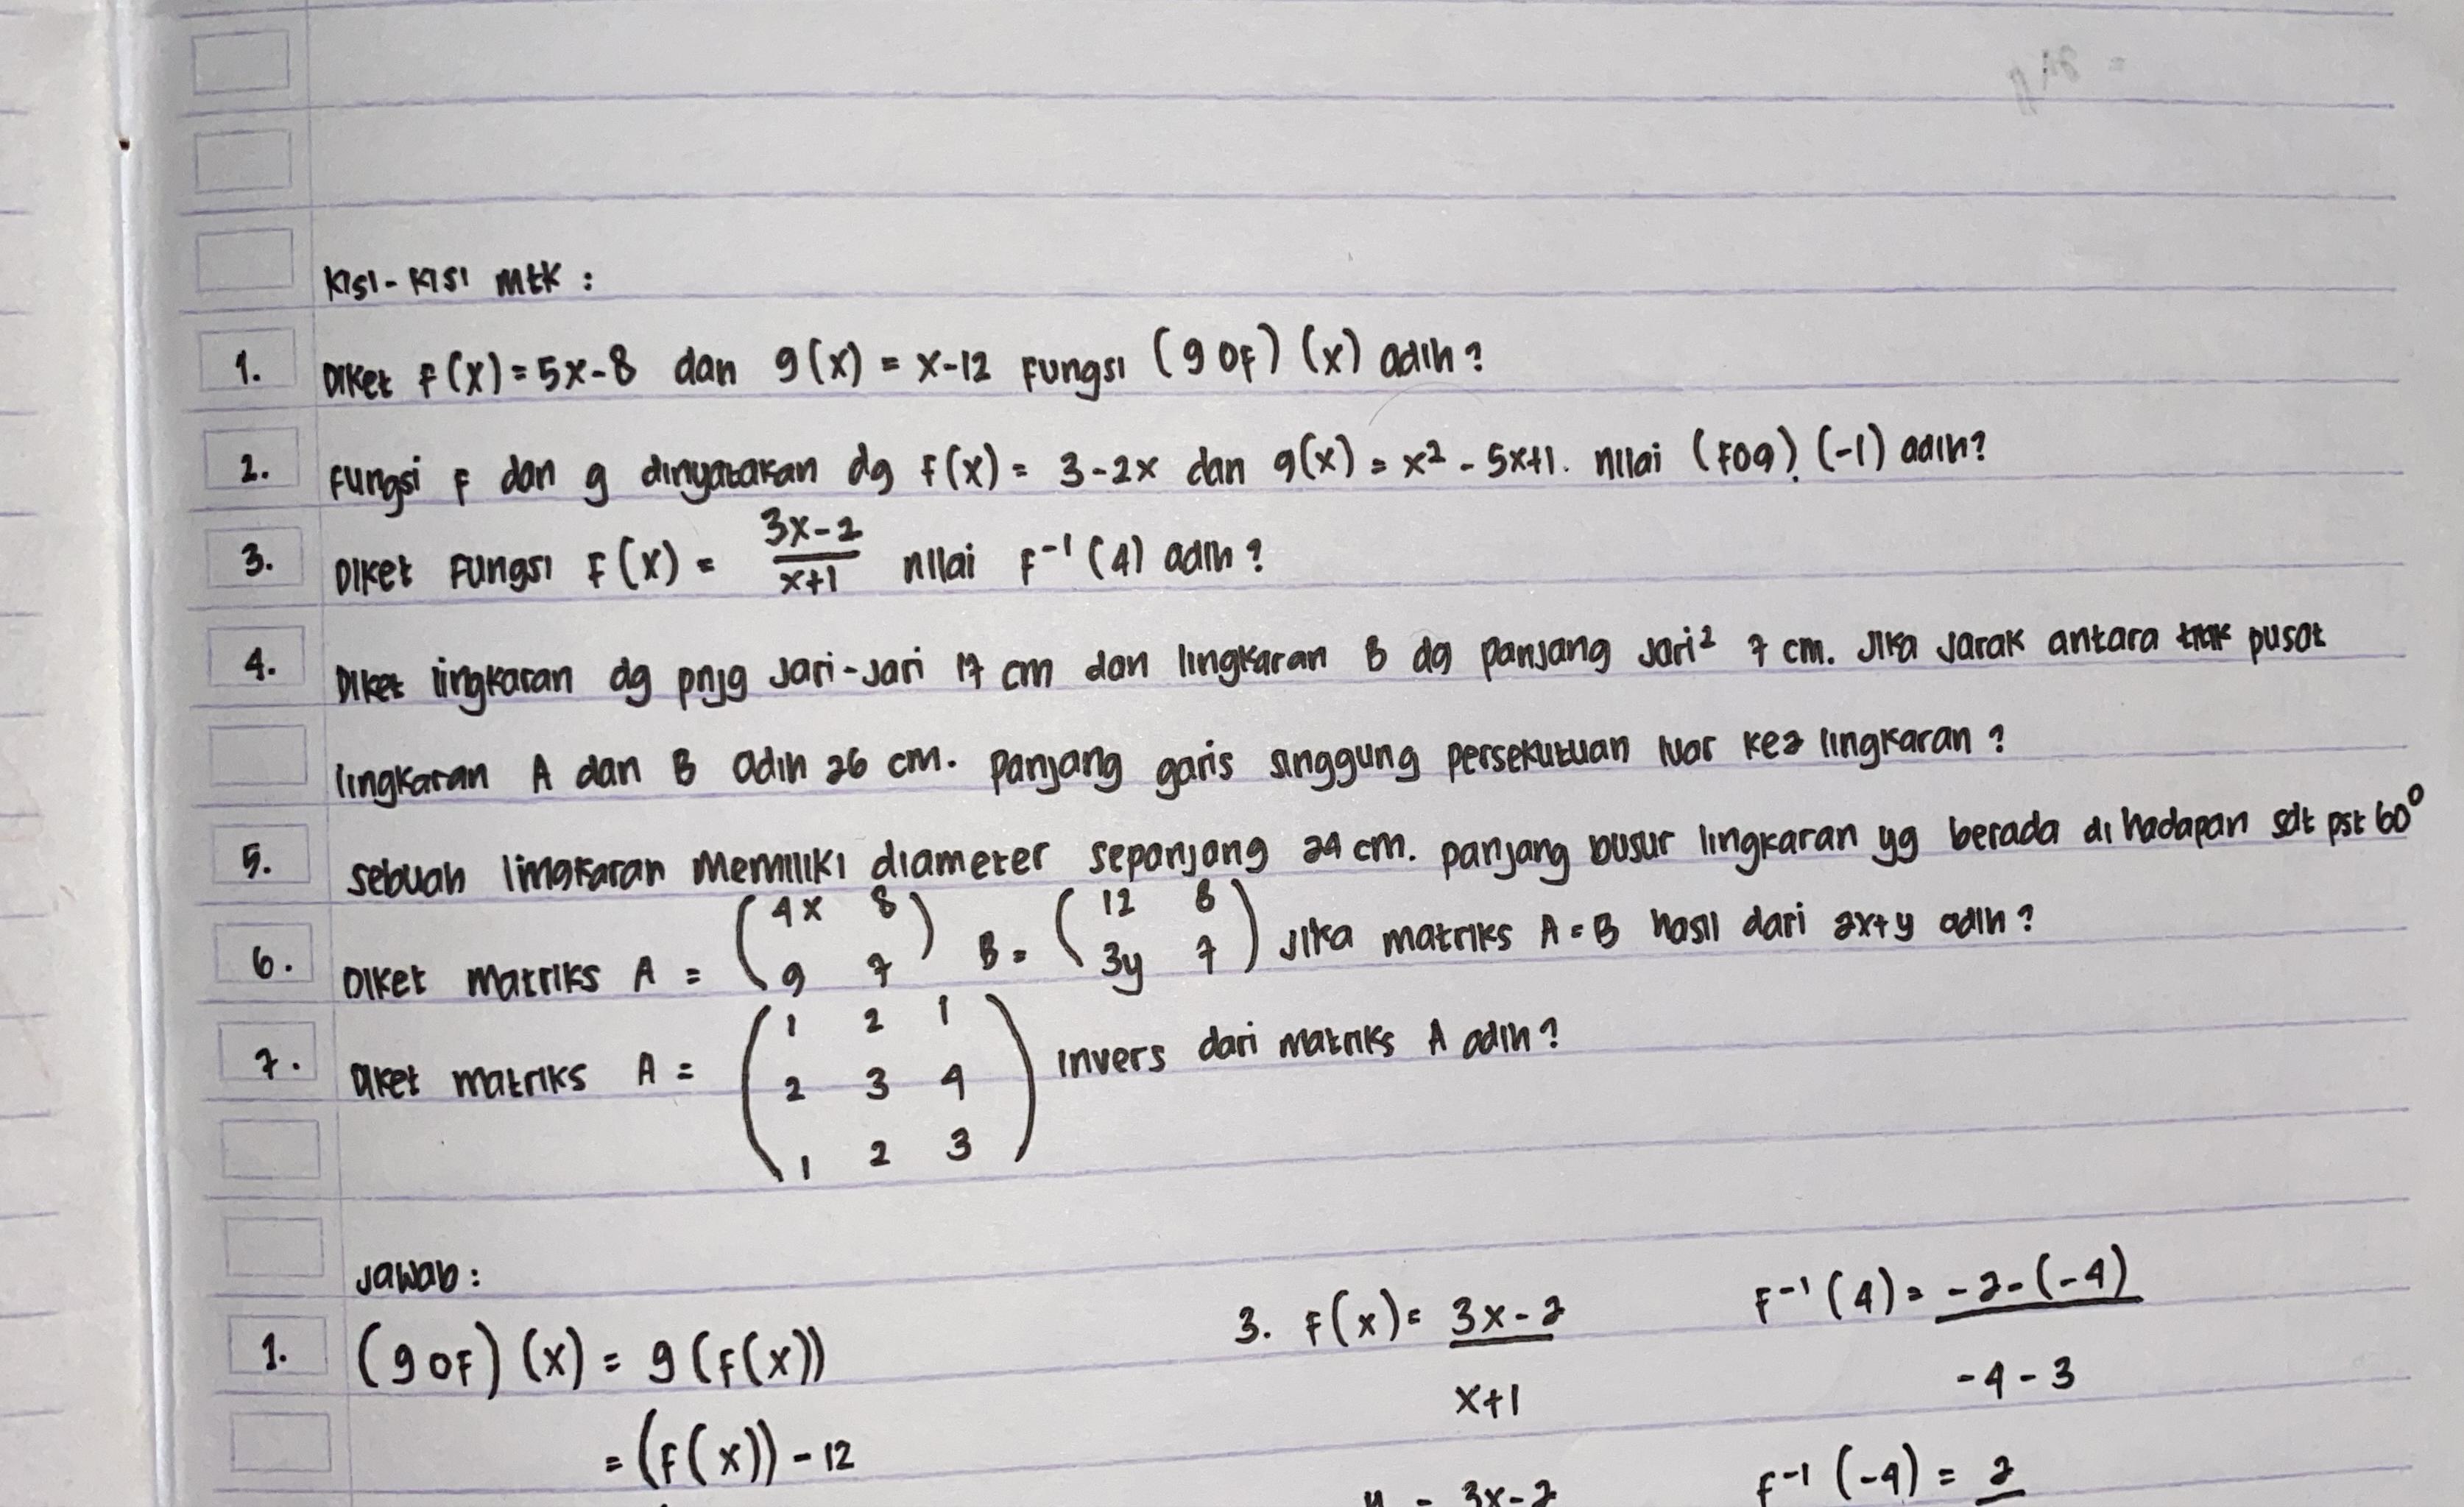 Kisi-Kisi mtk :
1. Diket f(x) = 5x-8 dan g(x) = x-12 Fungsi (g o f) (x) adlh?
2. Fungsi f dan g dinyatakan dg f(x) = 3-2x dan g(x) = x² - 5x+1. nilai (f o g) (-1) adlh?
3. Diket Fungsi f(x) = 3x-2 / x+1 nilai f⁻¹ (4) adlh?
4. Diket lingkaran dg pnjg Jari-Jari 17 cm dan lingkaran B dg panjang Jari² 7 cm. Jika Jarak antara titik pusat
lingkaran A dan B adlh 26 cm. panjang garis singgung persekutuan luar ke2 lingkaran?
5. sebuah lingkaran memiliki diameter sepanjang 24 cm. panjang busur lingkaran yg berada di hadapan sdt pst 60°
6. Diket matriks A = ( 4x 8 / 9 7 ) B = ( 12 8 / 3y 7 ) Jika matriks A = B hasil dari 2x+y adlh?
7. Diket matriks A = ( 1 2 1 / 2 3 4 / 1 2 3 ) invers dari matriks A adlh?
Jawab :
1. (g o f) (x) = g (f(x))
= (f(x)) - 12
3. f(x) = 3x-2 / x+1
y = 3x-2
f⁻¹ (4) = -2-(-4) / -4-3
f⁻¹ (-4) = 2